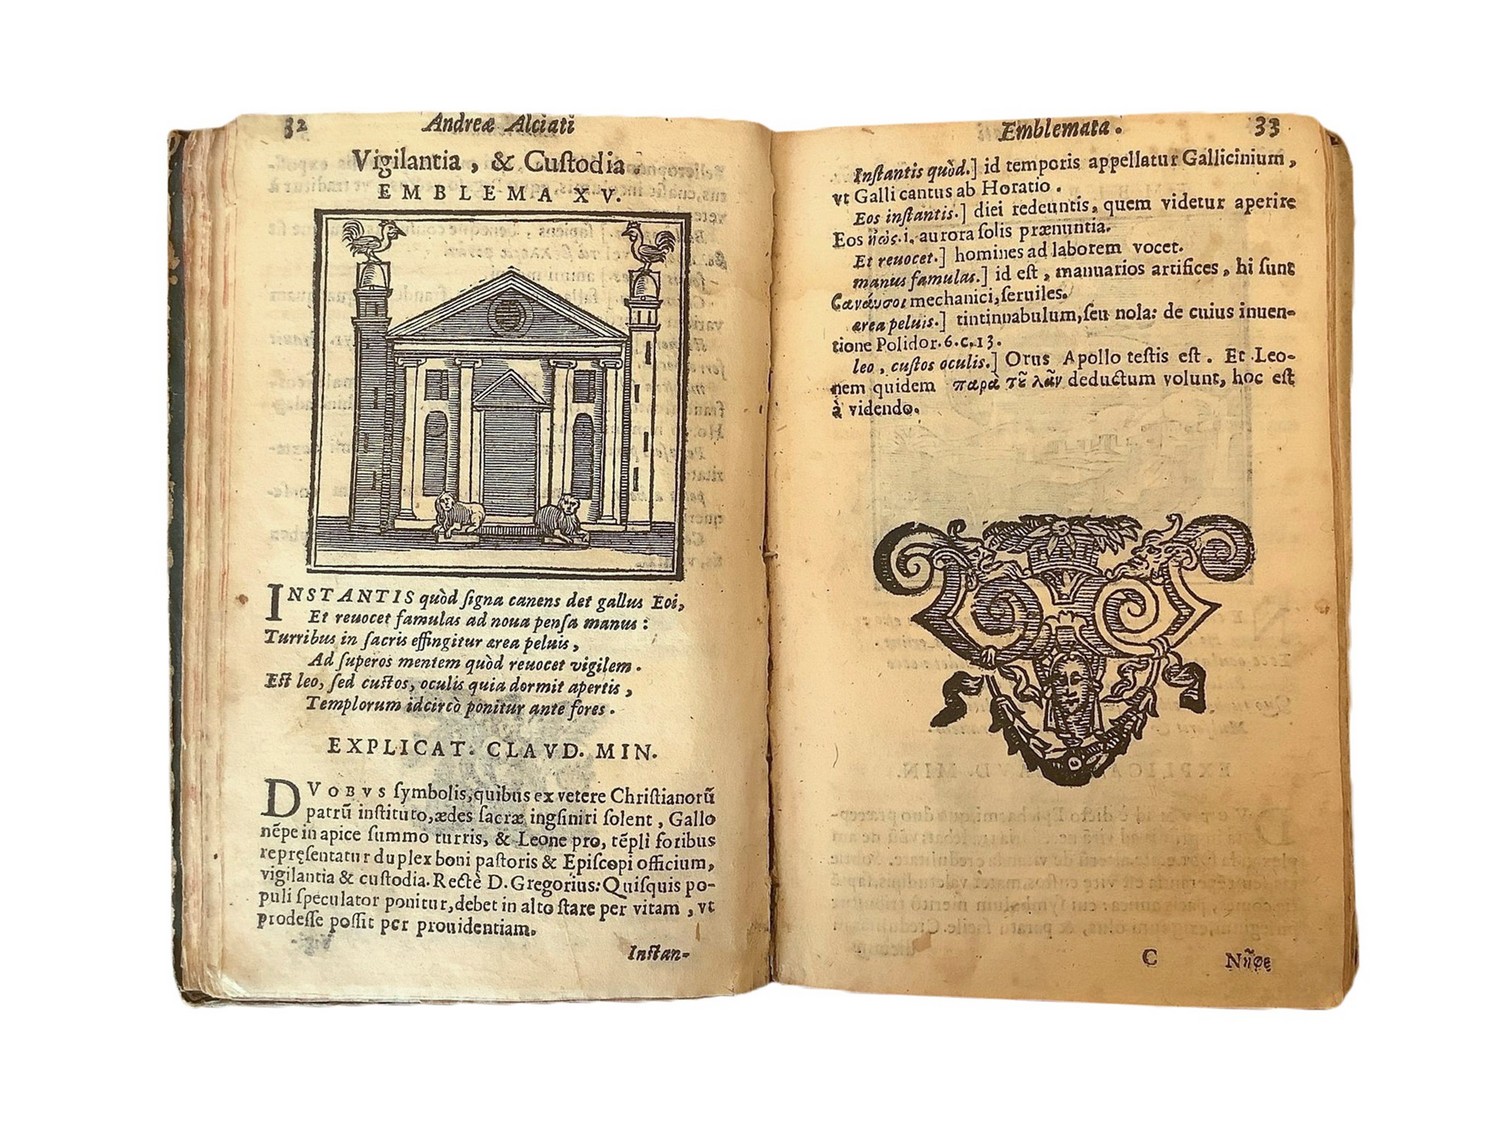 32 Andreæ Alciati
Vigilantia, & Cuſtodia.
EMBLEMA XV.
INSTANTIS quòd ſigna canens det gallus Eoi,
Et reuocet famulas ad noua penſa manus:
Turribus in ſacris effingitur ærea peluis,
Ad ſuperos mentem quòd reuocet vigilem.
Eſt leo, ſed cuſtos, oculis quia dormit apertis,
Templorum idcircò ponitur ante fores.
EXPLICAT. CLAVD. MIN.
DVOBVS ſymbolis, quibus ex vetere Chriſtianorũ
patrũ inſtituto, ædes ſacræ ingſiniri ſolent, Gallo
nẽpe in apice ſummo turris, & Leone pro, tẽpli foribus
repręſentatur duplex boni paſtoris & Epiſcopi officium,
vigilantia & cuſtodia. Rectè D. Gregorius: Quiſquis po-
puli ſpeculator ponitur, debet in alto ſtare per vitam, vt
prodeſſe poſſit per prouidentiam.
Inſtan-
Emblemata. 33
Inſtantis quòd.] id temporis appellatur Gallicinium,
vt Galli cantus ab Horatio.
Eos inſtantis.] diei redeuntis, quem videtur aperire
Eos ἠώς. i. aurora ſolis prænuntia.
Et reuocet.] homines ad laborem vocet.
manus famulas.] id eſt, manuarios artifices, hi ſunt
βανάυσοι mechanici, ſeruiles.
ærea peluis.] tintinnabulum, ſeu nola: de cuius inuen-
tione Polidor. 6. c. 13.
leo, cuſtos oculis.] Orus Apollo teſtis eſt. Et Leo-
nem quidem παρὰ τȣ͂ λᾶν deductum volunt, hoc eſt
à videndo.
C Nῆφε